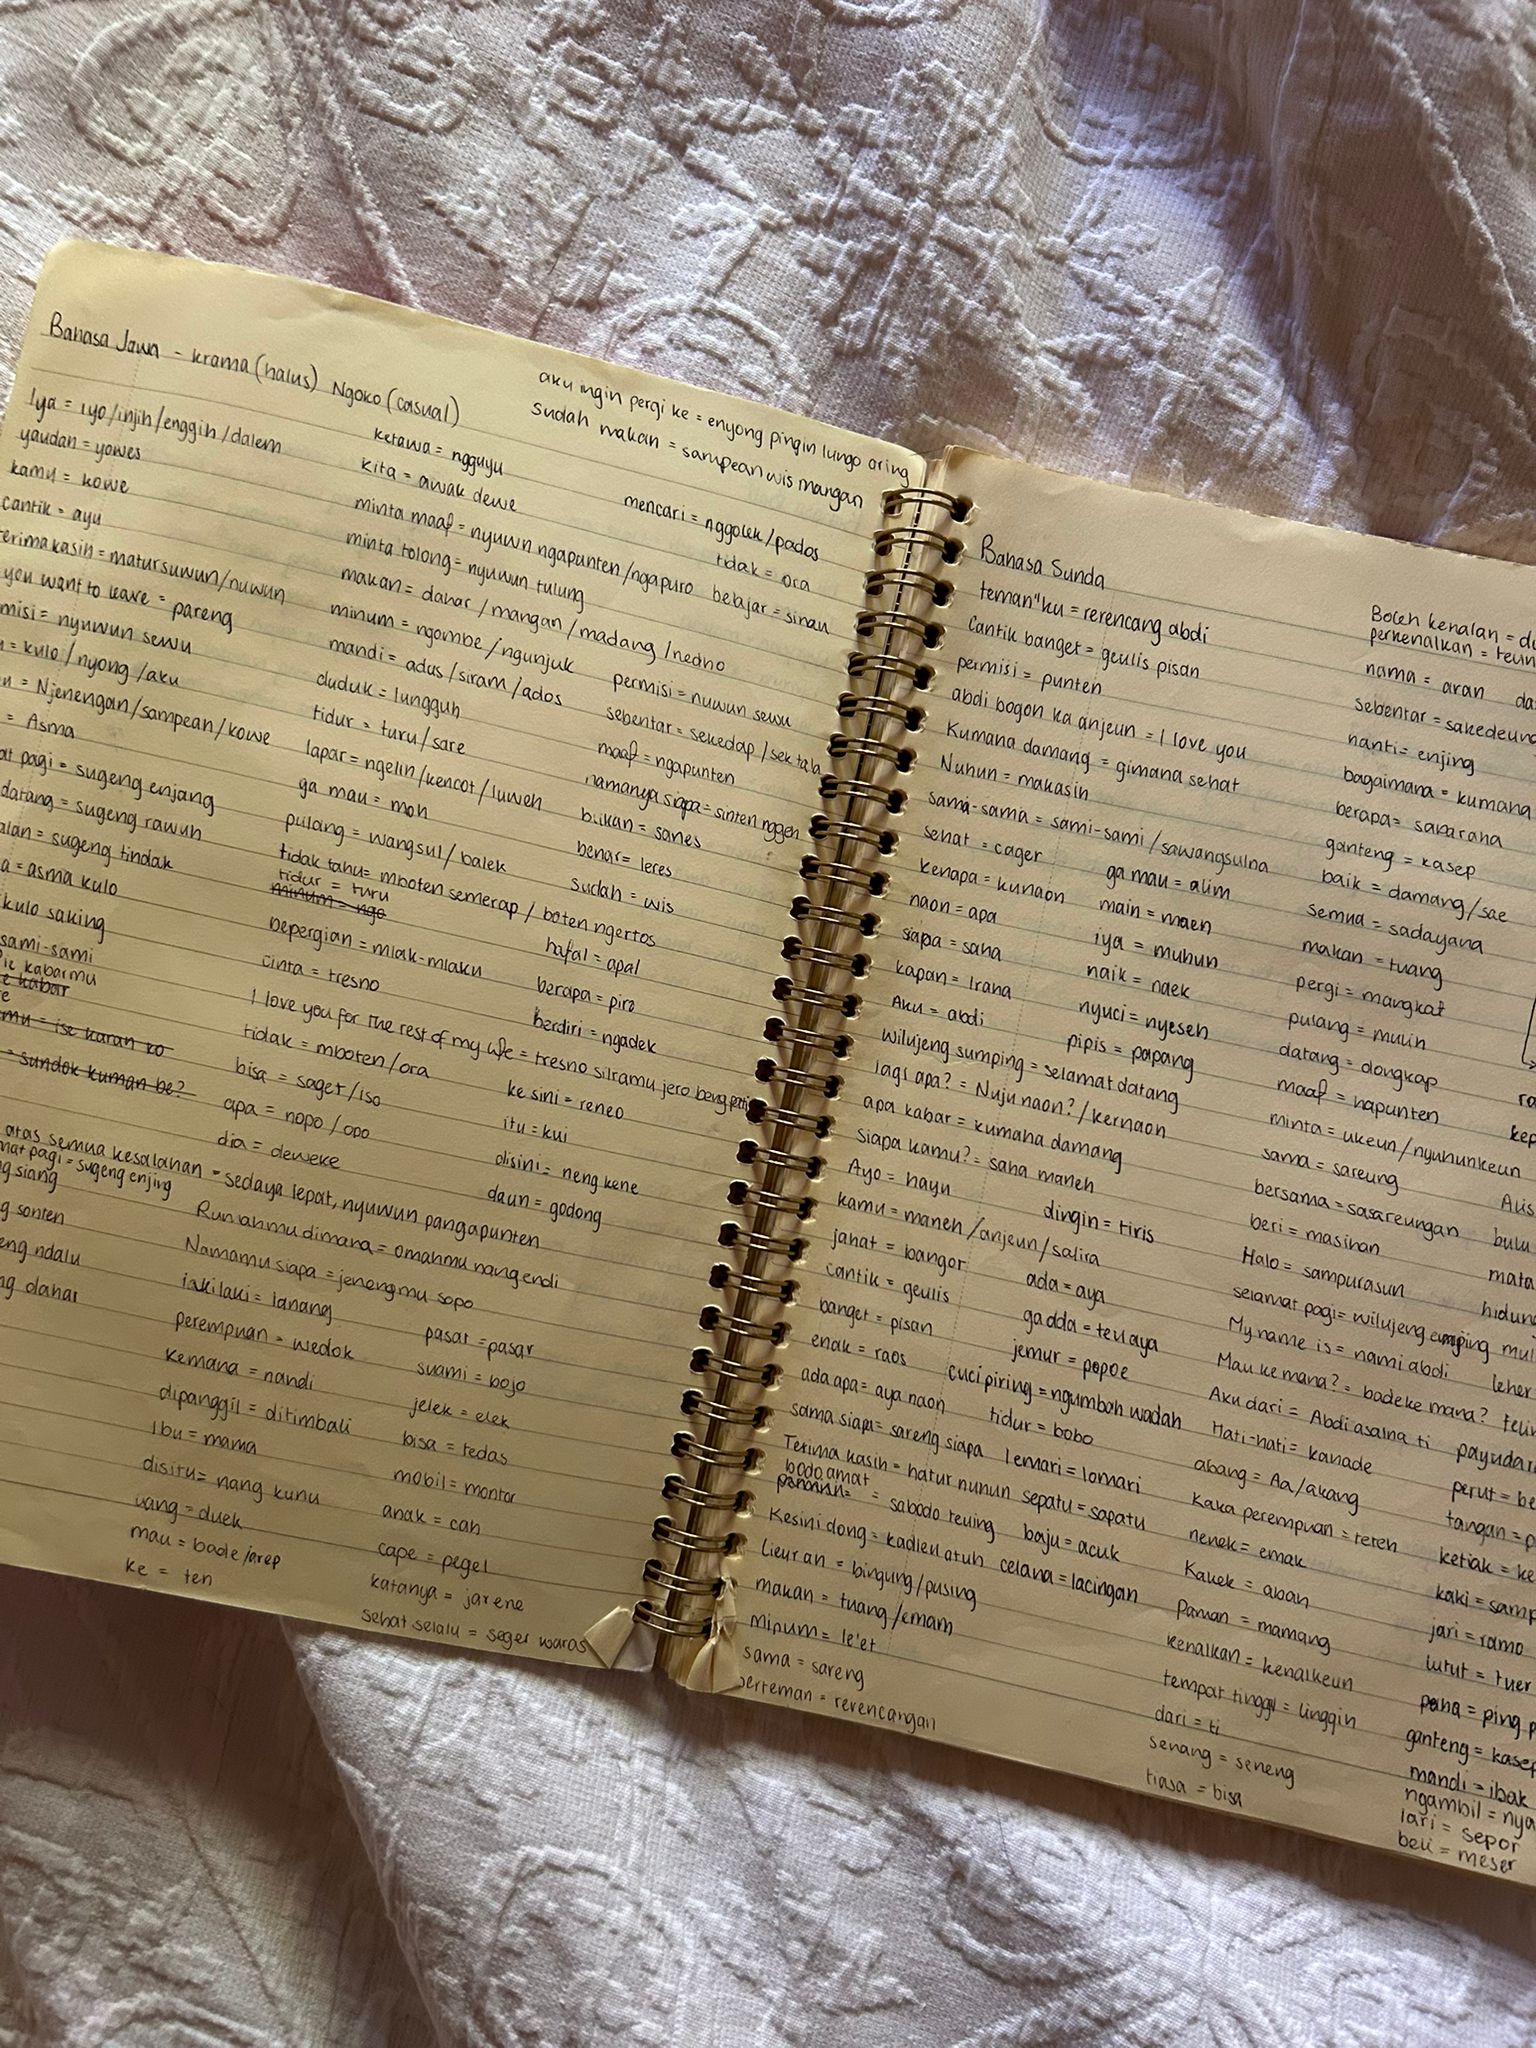 Bahasa Jawa - krama (halus) Ngoko (casual)
Iya = iyo/injih/enggih/dalem
yaudah = yowes
kamu = kowe
cantik = ayu
terimakasih = matursuwun/nuwun
you want to leave = pareng
misi = nyuwun sewu
= kulo/nyong/aku
= Njenengan/sampean/kowe
= Asma
pagi = sugeng enjang
datang = sugeng rawuh
jalan = sugeng tindak
= asma kulo
kulo saking
sami-sami
kabarmu
kabar
= ise karan ko
= sundok kuman be?
atas semua kesalahan = sedaya lepat, nyuwun pangapunten
mat pagi = sugeng enjing
siang
sonten
ndalu
dahar
ketawa = ngguyu
kita = awak dewe
minta maaf = nyuwun ngapunten/ngapuro
minta tolong = nyuwun tulung
makan = dahar/mangan/madang/nedho
minum = ngombe/ngunjuk
mandi = adus/siram/ados
duduk = lungguh
tidur = turu/sare
lapar = ngelih/kencot/luweh
ga mau = moh
pulang = wangsul/balek
tidak tahu = mboten semerap/boten ngertos
tidur = turu
minum = ngo
bepergian = mlak-mlaku
cinta = tresno
I love you for the rest of my life = tresno siliramu jero
tidak = mboten/ora
bisa = saget/iso
apa = nopo/opo
dia = deweke
Rumahmu dimana = omahmu nang endi
Namamu siapa = jenengmu sopo
lakilaki = lanang
perempuan = wedok
kemana = nandi
dipanggil = ditimbali
Ibu = mama
disitu = nang kunu
uang = duek
mau = bade/arep
ke = ten
aku ingin pergi ke = enyong pingin lungo oring
sudah makan = sampean wis mangan
mencari = nggolek/pados
tidak = ora
belajar = sinau
permisi = nuwun sewu
sebentar = sekedap/sek tah
maaf = ngapunten
namanya siapa = sinten nggeh
bukan = sanes
benar = leres
sudah = wis
hafal = apal
berapa = piro
berdiri = ngadek
kesini = reneo
itu = kui
disini = neng kene
daun = godong
pasar = pasar
suami = bojo
jelek = elek
bisa = tedas
mobil = montor
anak = cah
cape = pegel
katanya = jarene
sehat selalu = seger waras
Bahasa Sunda
teman"ku = rerencang abdi
cantik banget = geulis pisan
permisi = punten
abdi bogoh ka anjeun = I love you
Kumana damang = gimana sehat
Nuhun = makasih
sama-sama = sami-sami/sawangsulna
sehat = cager
kenapa = kunaon
naon = apa
siapa = saha
kapan = Iraha
Aku = abdi
wilujeng sumping = selamat datang
lagi apa? = Nuju naon?/kernaon
apa kabar = kumaha damang
siapa kamu? = saha maneh
Ayo = hayu
kamu = maneh/anjeun/salira
jahat = bangor
cantik = geulis
banget = pisan
enak = raos
ada apa = aya naon
sama siapa = sareng siapa
Terima kasih = hatur nuhun
bodo amat = sabodo teuing
Kesini dong = kadieu atuh
lieuran = bingung/pusing
makan = tuang/emam
Minum = le'et
sama = sareng
berteman = rerencangan
ga mau = alim
main = maen
iya = muhun
naik = naek
nyuci = nyeseh
pipis = papang
dingin = tiris
ada = aya
ga dda = teu aya
jemur = popoe
cuci piring = ngumbah wadah
tidur = bobo
lemari = lomari
sepatu = sapatu
baju = acuk
celana = lacingan
Boleh kenalan =
perkenalkan =
nama = aran
sebentar = sakedeung
nanti = enjing
bagaimana = kumaha
berapa = sabaraha
ganteng = kasep
baik = damang/sae
semua = sadayana
makan = tuang
pergi = mangkat
pulang = mulih
datang = dongkap
maaf = hapunten
minta = ukeun/nyuhunkeun
sama = sareung
bersama = sasareungan
beri = masihan
Halo = sampurasun
selamat pagi = wilujeng
My name is = nami abdi
Mau kemana? = badeke mana?
Aku dari = Abdi asalna ti
Hati-hati = kanade
abang = Aa/akang
Kaka perempuan = teteh
nenek = emak
Kakek = abah
paman = mamang
kenalkan = kenalkeun
tempat tinggal = linggih
dari = ti
senang = seneng
tiasa = bisa
Alis
bulu
mata
hidung
leher
perut =
tangan =
ketiak =
kaki =
jari = ramo
lutut =
paha = ping
ganteng = kasep
mandi = ibak
ngambil =
lari = sepor
beli = meser